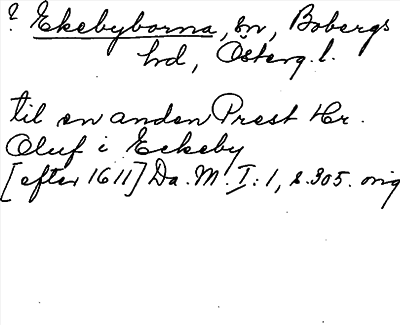 ? Ekebyborna, sn, Bobergs
hd, Österg.l.
til en anden Prest Hr.
Oluf i Eckeby
[efter 1611] Da. M. I: 1, s. 305. orig